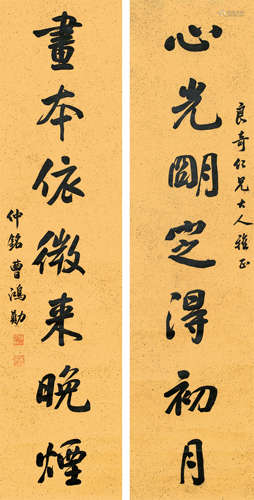 良奇仁兄大人雅正
心光朙定得初月
畫本依微来晚煙
仲銘曹鴻勛